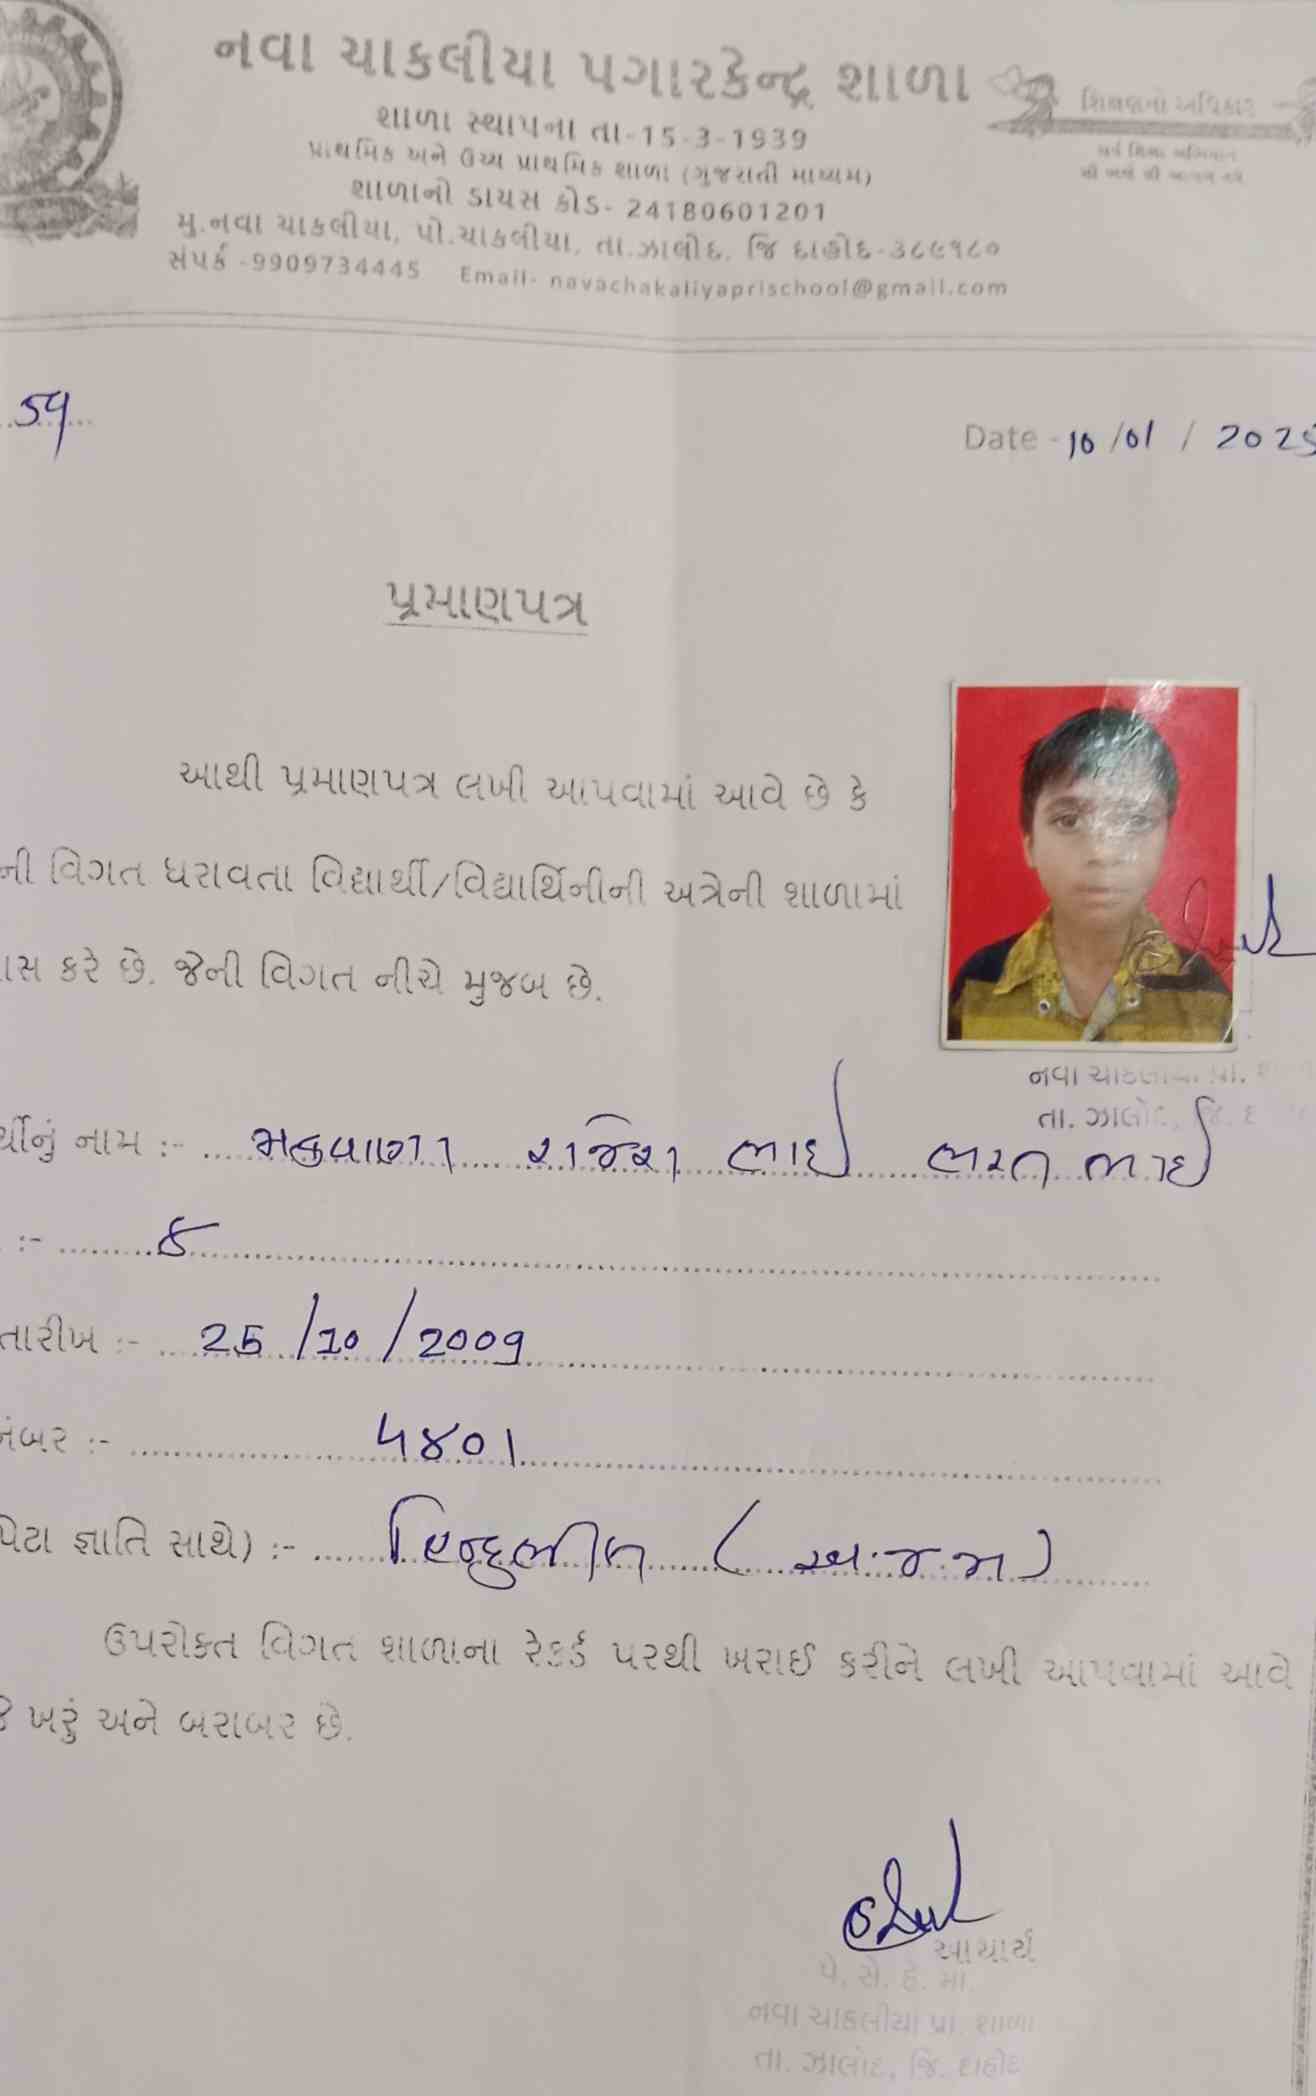 નવા ચાકલીયા પગારકેન્દ્ર શાળા
શિક્ષણનો અધિકાર
સર્વ શિક્ષા અભિયાન
સૌ ભણે સૌ આગળ વધે
શાળા સ્થાપના તા-15-3-1939
પ્રાથમિક અને ઉચ્ચ પ્રાથમિક શાળા (ગુજરાતી માધ્યમ)
શાળાનો ડાયસ કોડ- 24180601201
મુ.નવા ચાકલીયા, પો.ચાકલીયા, તા.ઝાલોદ, જિ દાહોદ-૩૮૯૧૮૦
સંપર્ક -9909734445 Email- navachakaliyaprischool@gmail.com
59
Date - 10/01/2025
પ્રમાણપત્ર
આથી પ્રમાણપત્ર લખી આપવામાં આવે છે કે
ની વિગત ધરાવતા વિદ્યાર્થી/વિદ્યાર્થિનીની અત્રેની શાળામાં
ાસ કરે છે. જેની વિગત નીચે મુજબ છે.
નવા ચાકલીયા પ્રા. શા
તા. ઝાલોદ, જિ. દ
ર્થીનું નામ :- મકવાણા રાજેશ ભાઈ ભરત ભાઈ
:- ૮
તારીખ :- 25/10/2009
નંબર :- ૫૪૦૧
પેટા જ્ઞાતિ સાથે) :- હિન્દુભીલ (અ.જ.જા)
ઉપરોક્ત વિગત શાળાના રેકર્ડ પરથી ખરાઈ કરીને લખી આપવામાં આવે
જે ખરું અને બરાબર છે.
આચાર્ય
પે. સે. કે. મા.
નવા ચાકલીયા પ્રા. શાળા
તા. ઝાલોદ, જિ. દાહોદ